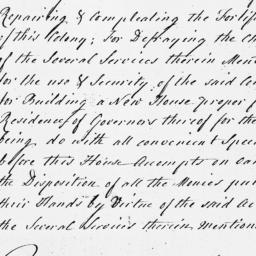 Repairing & Compleating the Fortif
of this Colony; For Defraying the Ch
of the Several Services therein Ment
for the use & Security of the said Co
for Building a New House proper f
Residence of Governors thereof for the
being do with all convenient Spee
before this House Accompts on Oa
the Disposition of all the Monies put
their Hands by Virtue of the said Ac
the Several Services therein mentione